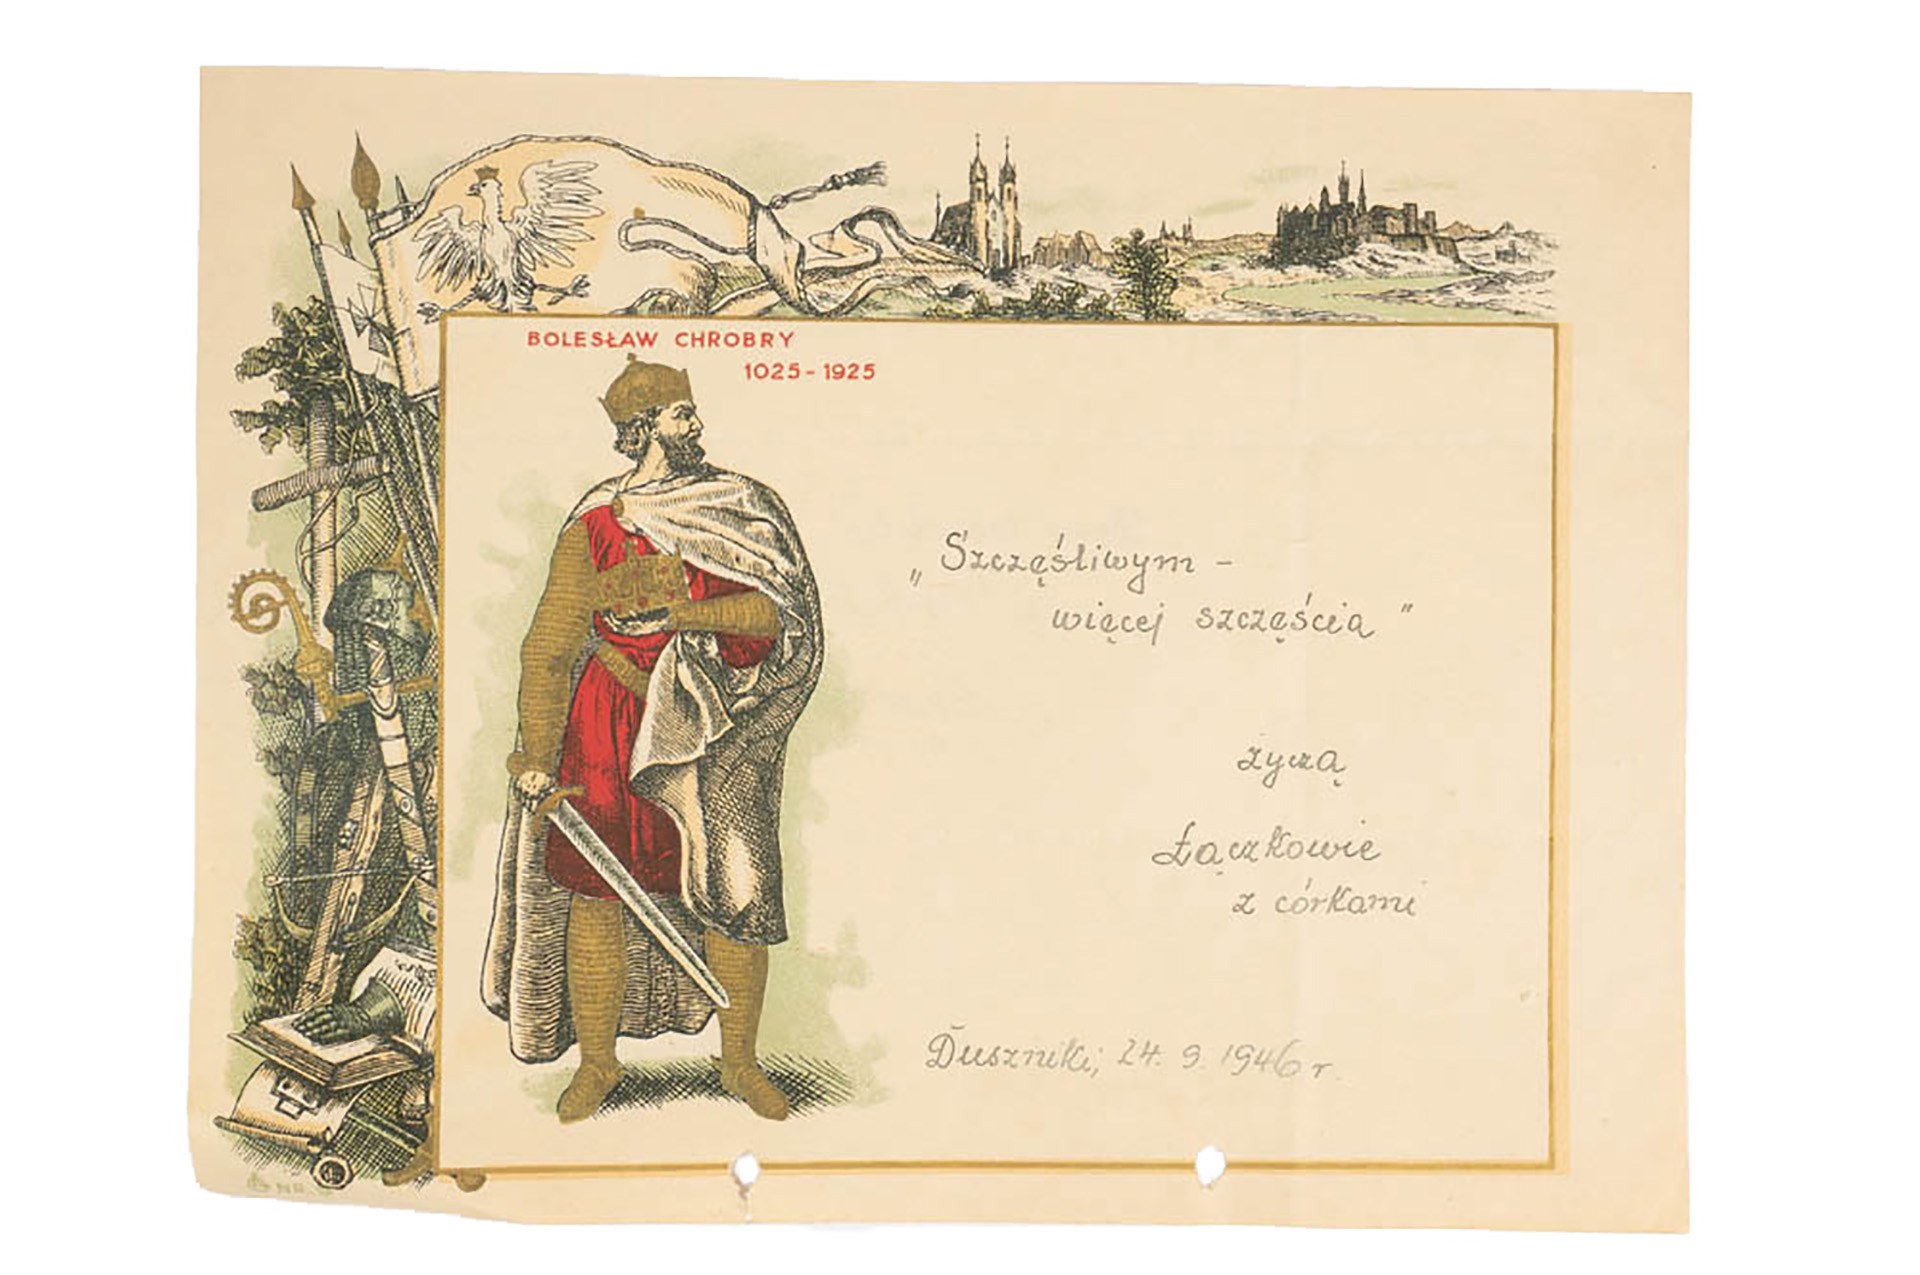 BOLESŁAW CHROBRY
1025-1925
„Szczęśliwym -
więcej szczęścia"
życzą
Łączkowie
z córkami
Duszniki, 24. 9. 1946 r.